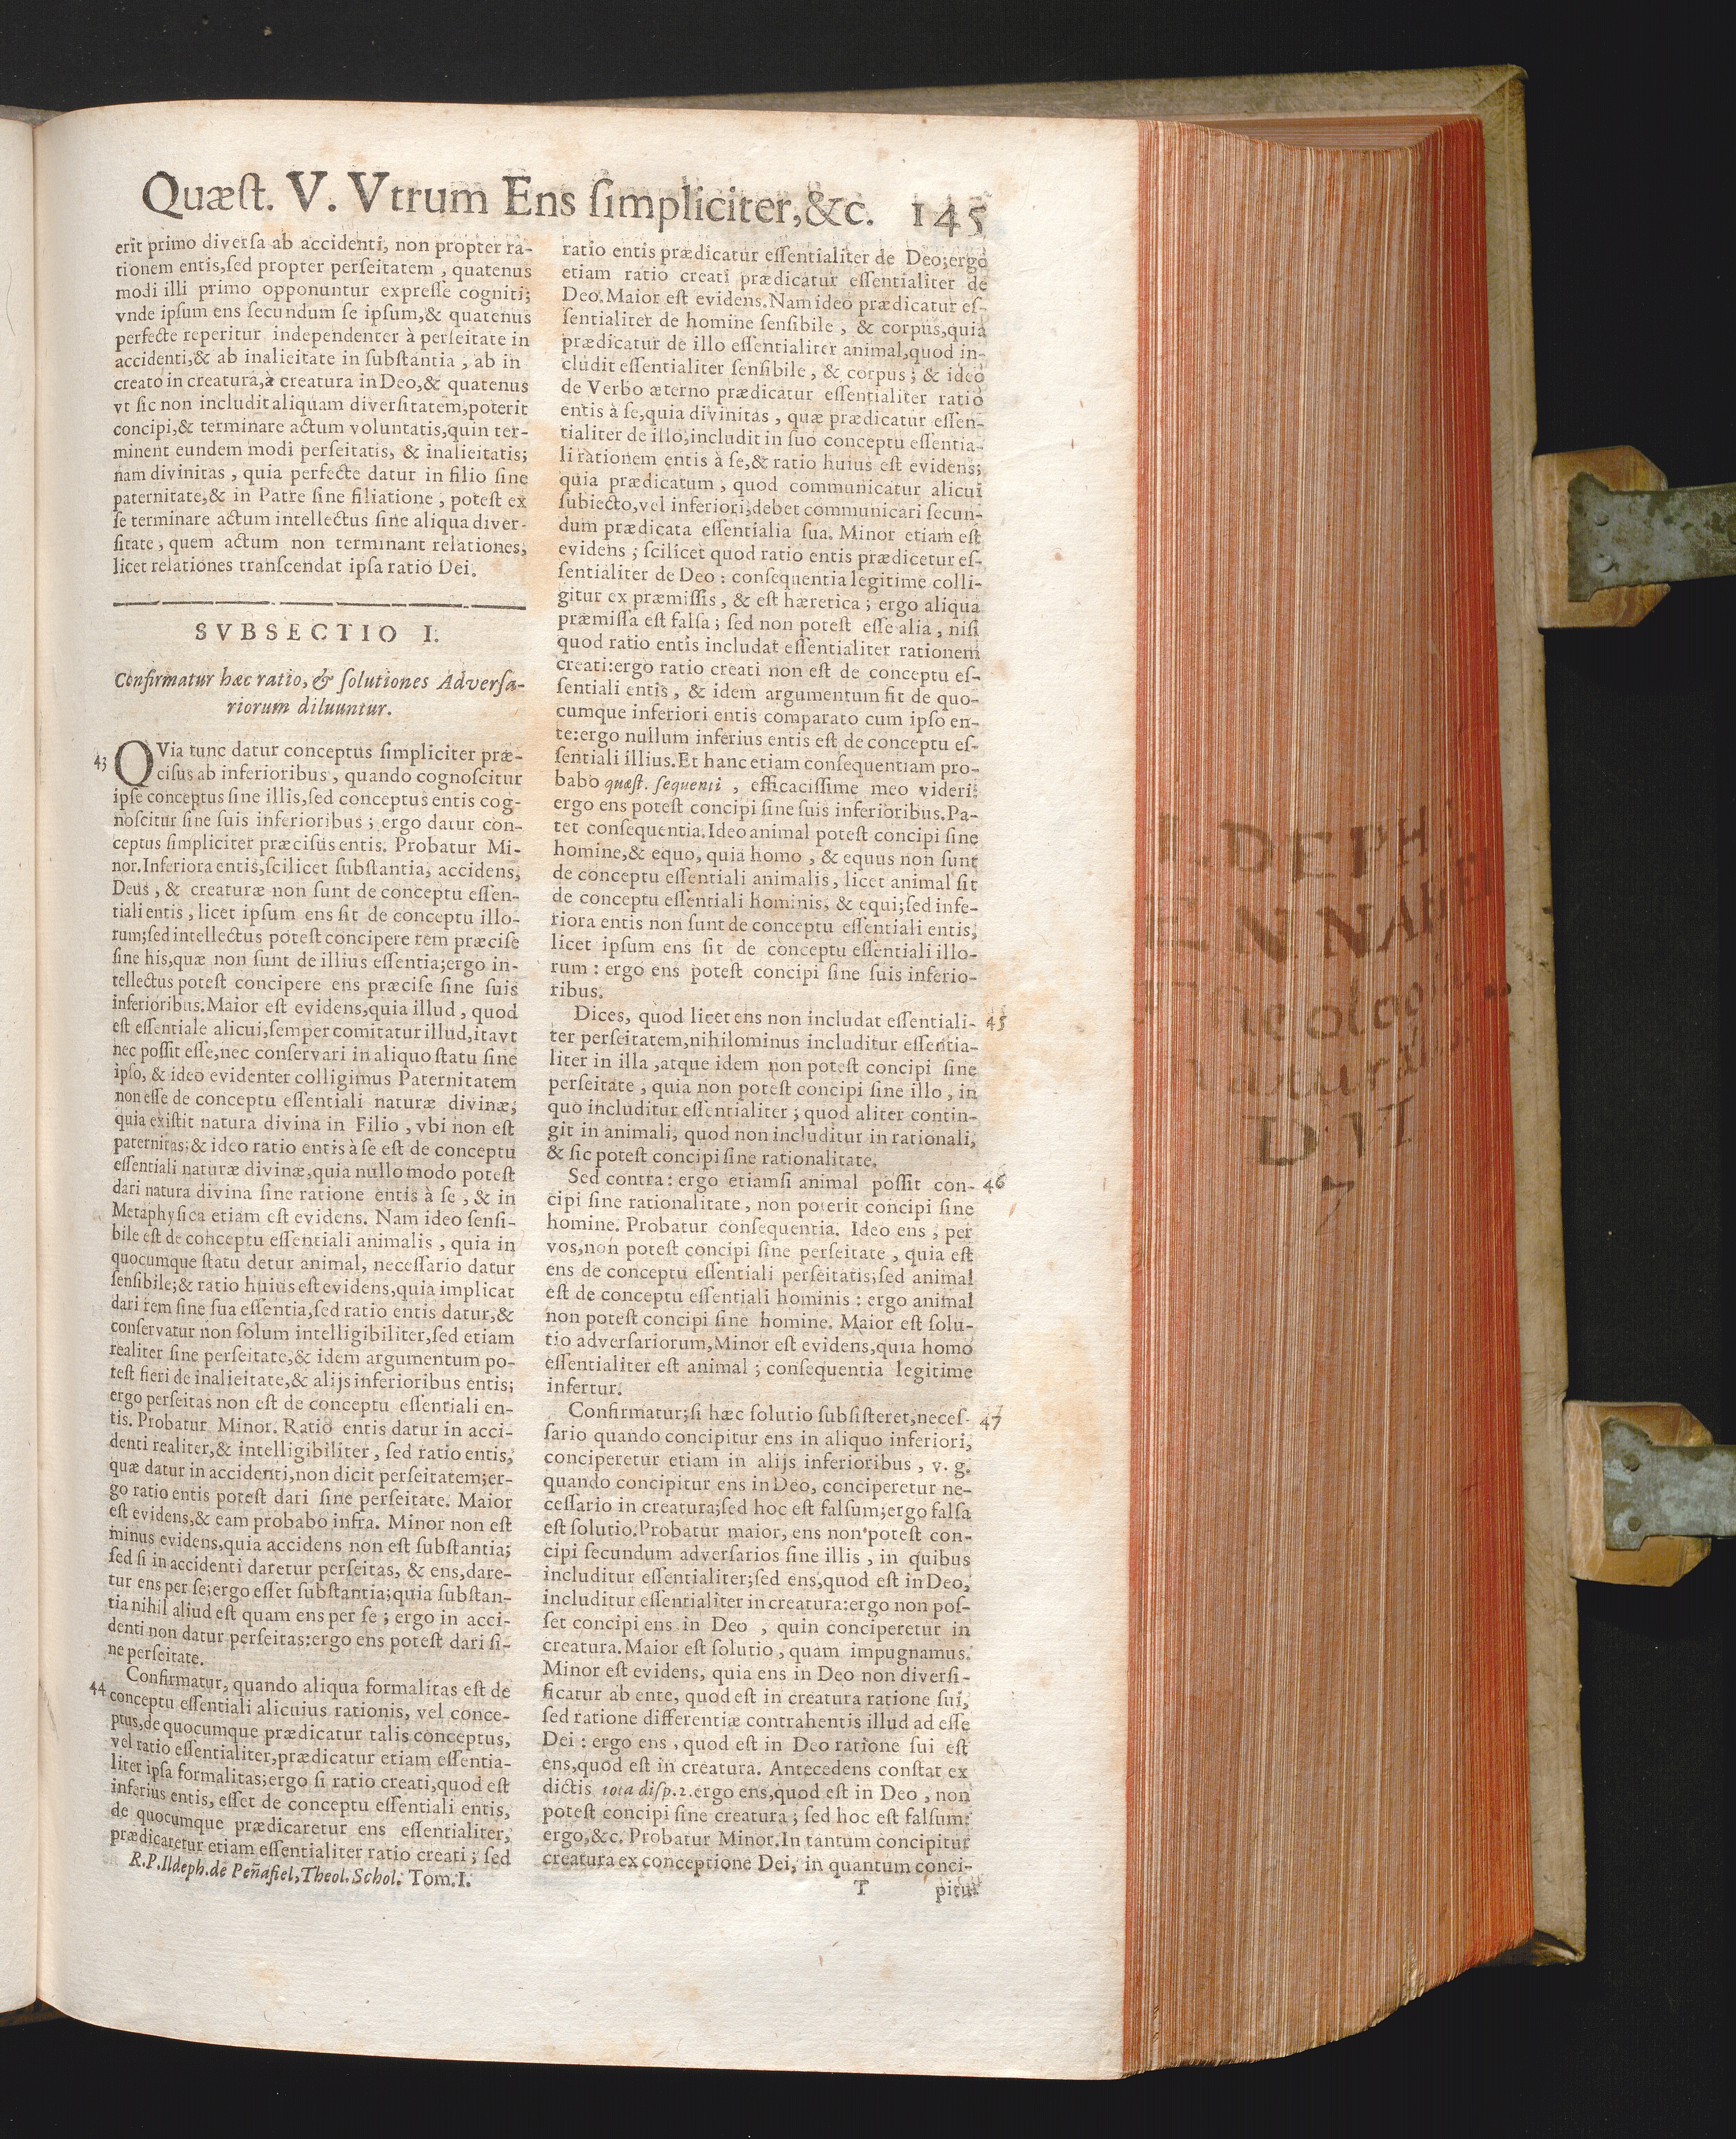 Quæſt. V. Vtrum Ens ſimpliciter,&c. 145
erit primo diverſa ab accidenti, non propter ra-
tionem entis,ſed propter perſeitatem , quatenus
modi illi primo opponuntur expreſſe cogniti;
vnde ipſum ens ſecundum ſe ipſum,& quatenus
perfecte reperitur independenter à perſeitate in
accidenti,& ab inalieitate in ſubſtantia , ab in
creato in creatura,à creatura in Deo,& quatenus
vt ſic non includit aliquam diverſitatem,poterit
concipi,& terminare actum voluntatis,quin ter-
minent eundem modi perſeitatis, & inalieitatis;
nam divinitas , quia perfecte datur in filio ſine
paternitate,& in Patre ſine filiatione , poteſt ex
ſe terminare actum intellectus ſine aliqua diver-
ſitate , quem actum non terminant relationes,
licet relationes tranſcendat ipſa ratio Dei.
SVBSECTIO I.
Confirmatur hæc ratio, & ſolutiones Adverſa-
riorum diluuntur.
43 QVia tunc datur conceptus ſimpliciter præ-
ciſus ab inferioribus , quando cognoſcitur
ipſe conceptus ſine illis,ſed conceptus entis cog-
noſcitur ſine ſuis inferioribus ; ergo datur con-
ceptus ſimpliciter præciſus entis. Probatur Mi-
nor.Inferiora entis,ſcilicet ſubſtantia, accidens,
Deus , & creaturæ non ſunt de conceptu eſſen-
tiali entis , licet ipſum ens ſit de conceptu illo-
rum;ſed intellectus poteſt concipere rem præciſe
ſine his,quæ non ſunt de illius eſſentia;ergo in-
tellectus poteſt concipere ens præciſe ſine ſuis
inferioribus.Maior eſt evidens,quia illud , quod
eſt eſſentiale alicui,ſemper comitatur illud,ita vt
nec poſſit eſſe,nec conſervari in aliquo ſtatu ſine
ipſo, & ideo evidenter colligimus Paternitatem
non eſſe de conceptu eſſentiali naturæ divinæ,
quia exiſtit natura divina in Filio , vbi non eſt
paternitas;& ideo ratio entis à ſe eſt de conceptu
eſſentiali naturæ divinæ,quia nullo modo poteſt
dari natura divina ſine ratione entis à ſe , & in
Metaphyſica etiam eſt evidens. Nam ideo ſenſi-
bile eſt de conceptu eſſentiali animalis , quia in
quocumque ſtatu detur animal, neceſſario datur
ſenſibile;& ratio huius eſt evidens,quia implicat
dari rem ſine ſua eſſentia,ſed ratio entis datur,&
conſervatur non ſolum intelligibiliter,ſed etiam
realiter ſine perſeitate,& idem argumentum po-
teſt fieri de inalieitate,& alijs inferioribus entis;
ergo perſeitas non eſt de conceptu eſſentiali en-
tis. Probatur Minor. Ratio entis datur in acci-
denti realiter,& intelligibiliter , ſed ratio entis,
quæ datur in accidenti,non dicit perſeitatem;er-
go ratio entis poteſt dari ſine perſeitate. Maior
eſt evidens,& eam probabo infra. Minor non eſt
minus evidens,quia accidens non eſt ſubſtantia;
ſed ſi in accidenti daretur perſeitas, & ens,dare-
tur ens per ſe;ergo eſſet ſubſtantia;quia ſubſtan-
tia nihil aliud eſt quam ens per ſe ; ergo in acci-
denti non datur perſeitas:ergo ens poteſt dari ſi-
ne perſeitate.
44 Confirmatur, quando aliqua formalitas eſt de
conceptu eſſentiali alicuius rationis, vel conce-
ptus,de quocumque prædicatur talis conceptus,
vel ratio eſſentialiter,prædicatur etiam eſſentia-
liter ipſa formalitas;ergo ſi ratio creati,quod eſt
inferius entis, eſſet de conceptu eſſentiali entis,
de quocumque prædicaretur ens eſſentialiter,
prædicaretur etiam eſſentialiter ratio creati ; ſed
R.P.Ildeph.de Peñafiel,Theol.Schol. Tom.I.
ratio entis prædicatur eſſentialiter de Deo;ergo
etiam ratio creati prædicatur eſſentialiter de
Deo.Maior eſt evidens.Nam ideo prædicatur eſ-
ſentialiter de homine ſenſibile , & corpus,quia
prædicatur de illo eſſentialiter animal,quod in-
cludit eſſentialiter ſenſibile , & corpus ; & ideo
de Verbo æterno prædicatur eſſentialiter ratio
entis à ſe,quia divinitas , quæ prædicatur eſſen-
tialiter de illo,includit in ſuo conceptu eſſentia-
li rationem entis à ſe,& ratio huius eſt evidens;
quia prædicatum , quod communicatur alicui
ſubiecto,vel inferiori,debet communicari ſecun-
dum prædicata eſſentialia ſua. Minor etiam eſt
evidens ; ſcilicet quod ratio entis prædicetur eſ-
ſentialiter de Deo : conſequentia legitime colli-
gitur ex præmiſſis , & eſt hæretica ; ergo aliqua
præmiſſa eſt falſa ; ſed non poteſt eſſe alia , niſi
quod ratio entis includat eſſentialiter rationem
creati:ergo ratio creati non eſt de conceptu eſ-
ſentiali entis , & idem argumentum fit de quo-
cumque inferiori entis comparato cum ipſo en-
te:ergo nullum inferius entis eſt de conceptu eſ-
ſentiali illius.Et hanc etiam conſequentiam pro-
babo quæſt. ſequenti , efficaciſſime meo videri:
ergo ens poteſt concipi ſine ſuis inferioribus.Pa-
tet conſequentia.Ideo animal poteſt concipi ſine
homine,& equo, quia homo , & equus non ſunt
de conceptu eſſentiali animalis , licet animal ſit
de conceptu eſſentiali hominis, & equi;ſed infe-
riora entis non ſunt de conceptu eſſentiali entis,
licet ipſum ens ſit de conceptu eſſentiali illo-
rum : ergo ens poteſt concipi ſine ſuis inferio-
ribus.
Dices, quod licet ens non includat eſſentiali- 45
ter perſeitatem,nihilominus includitur eſſentia-
liter in illa ,atque idem non poteſt concipi ſine
perſeitate , quia non poteſt concipi ſine illo , in
quo includitur eſſentialiter ; quod aliter contin-
git in animali, quod non includitur in rationali,
& ſic poteſt concipi ſine rationalitate.
Sed contra : ergo etiamſi animal poſſit con- 46
cipi ſine rationalitate , non poterit concipi ſine
homine. Probatur conſequentia. Ideo ens , per
vos,non poteſt concipi ſine perſeitate , quia eſt
ens de conceptu eſſentiali perſeitatis;ſed animal
eſt de conceptu eſſentiali hominis : ergo animal
non poteſt concipi ſine homine. Maior eſt ſolu-
tio adverſariorum,Minor eſt evidens,quia homo
eſſentialiter eſt animal ; conſequentia legitime
infertur.
Confirmatur;ſi hæc ſolutio ſubſiſteret,neceſ- 47
ſario quando concipitur ens in aliquo inferiori,
conciperetur etiam in alijs inferioribus , v. g.
quando concipitur ens in Deo, conciperetur ne-
ceſſario in creatura;ſed hoc eſt falſum;ergo falſa
eſt ſolutio.Probatur maior, ens non poteſt con-
cipi ſecundum adverſarios ſine illis , in quibus
includitur eſſentialiter;ſed ens,quod eſt in Deo,
includitur eſſentialiter in creatura:ergo non poſ-
ſet concipi ens in Deo , quin conciperetur in
creatura.Maior eſt ſolutio , quam impugnamus.
Minor eſt evidens, quia ens in Deo non diverſi-
ficatur ab ente, quod eſt in creatura ratione ſui,
ſed ratione differentiæ contrahentis illud ad eſſe
Dei : ergo ens , quod eſt in Deo ratione ſui eſt
ens,quod eſt in creatura. Antecedens conſtat ex
dictis tota diſp.2.ergo ens,quod eſt in Deo , non
poteſt concipi ſine creatura ; ſed hoc eſt falſum:
ergo,&c. Probatur Minor.In tantum concipitur
creatura ex conceptione Dei, in quantum conci-
T pitur
D VI
7